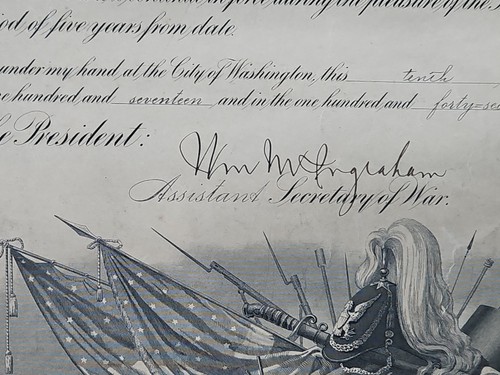 before during the pleasure of the
of five years from date.
under my hand, at the City of Washington, this tenth
hundred, and seventeen and in the one hundred, and forty=se
President:
Wm M Ingraham
Assistant Secretary of War.